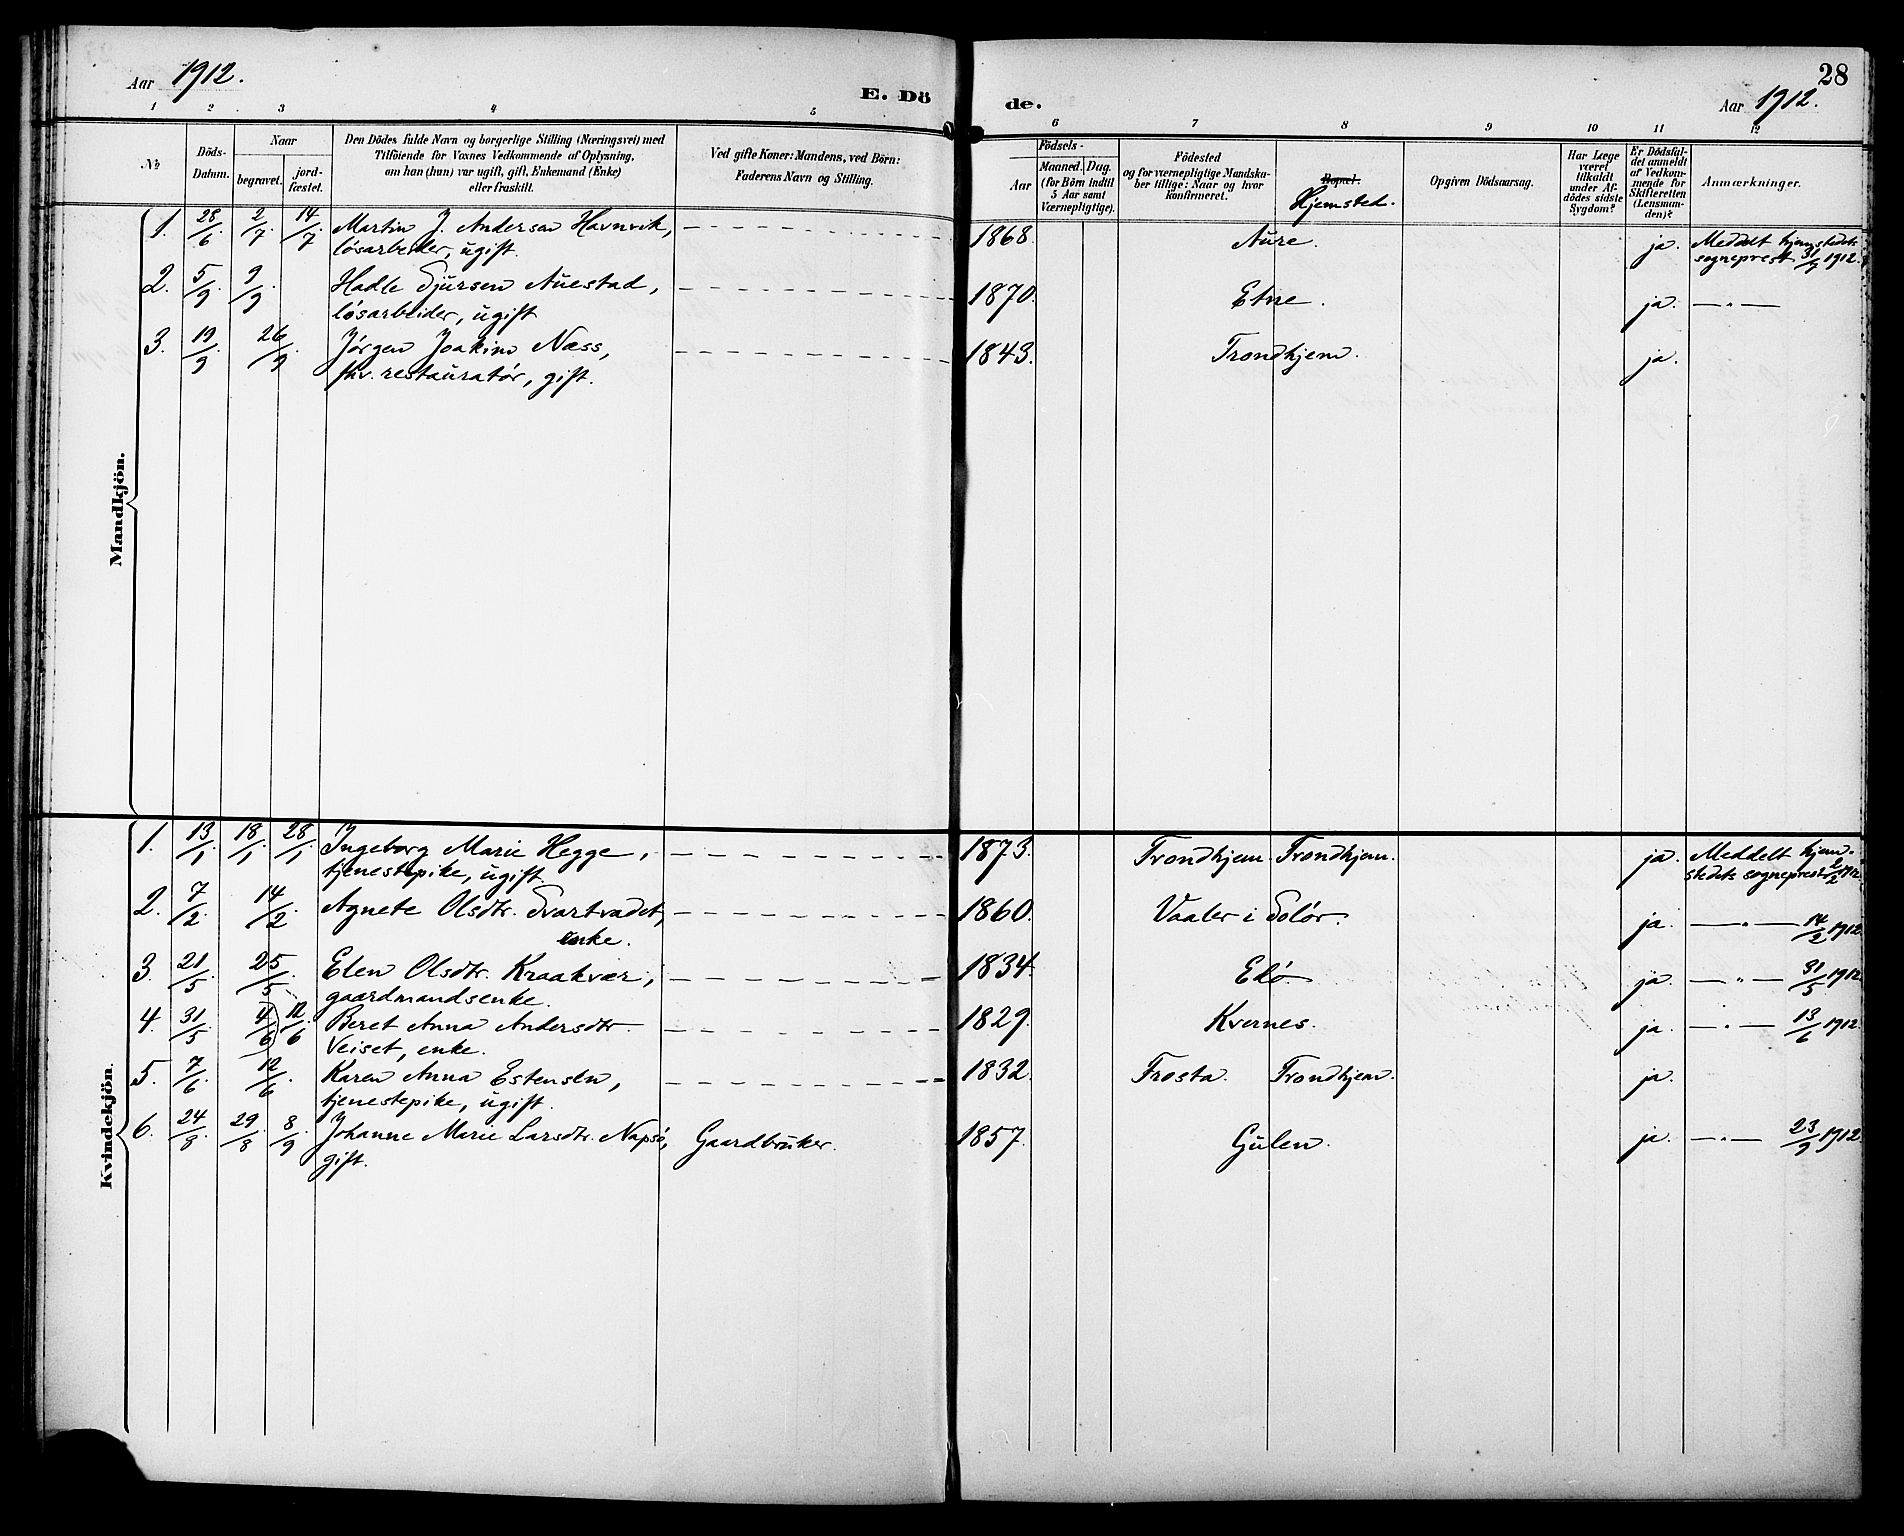 Aar 1912.
E. Dö
de.
28
Aar 1912.
1 2 3 4 5 6 7 8 9 10 11 12
№
Döds-
Datum.
Naar
begravet.
jord-
fæstet.
Den Dödes fulde Navn og borgerlige Stilling (Næringsvei) med
Tilföiende for Voxnes Vedkommende af Oplysning,
om han (hun) var ugift, gift, Enkemand (Enke)
eller fraskilt.
Ved gifte Koner: Mandens, ved Börn:
Faderens Navn og Stilling.
Födsels-
Aar
Maaned. Dag.
(for Börn indtil
5 Aar samt
Værnepligtige).
Födested
og for værnepligtige Mandska-
ber tillige: Naar og hvor
konfirmeret.
Bopæl.
Hjemsted.
Opgiven Dödsaarsag.
Har Læge
været
tilkaldt
under Af-
dödes sidste
Sygdom?
Er Dödsfal-
det anmeldt
af Vedkom-
mende for
Skifteretten
(Lensman-
den)?
Anmærkninger.
Mandkjön.
1. 28/6 2/7 14/7 Martin J. Andersen Havnvik, 1868. Aure. ja. Meddelt hjemstedets
løsarbeider, ugift. sogneprest 31/7 1912.
2. 5/9 9/9 Hadle Sjursen Auestad, 1870. Etne. ja. — „ —
løsarbeider, ugift
3. 19/9 26/9 Jørgen Joakim Næss, 1843. Trondhjem. ja.
fhv. restauratør, gift.
Kvindekjön.
1. 13/1 18/1 28/1 Ingeborg Marie Hegge, 1873. Trondhjem. Trondhjem. ja. Meddelt hjem-
tjenestepike, ugift. stedets sogneprest 2/2 1912.
2. 7/2 14/2 Agnete Olsdtr. Svartvadet, 1860. Vaaler i Solør. ja. — „ — 14/2 1912
enke.
3. 21/5 25/5 Elen Olsdtr. Kraakvær, 1834 Edø. ja. — „ — 31/5 1912
gaardmandsenke.
4. 31/5 4/6 12/6 Beret Anna Andersdtr. 1829. Kvernes. ja. — „ — 13/6 1912.
Veiset, enke.
5. 7/6 12/6 Karen Anna Estensen, 1832. Frosta. Trondhjem. ja.
tjenestepike, ugift.
6. 24/8 29/8 8/9 Johanne Marie Larsdtr. Napsø, Gaardbruker. 1857. Gulen. ja. — „ — 23/9 1912.
gift.